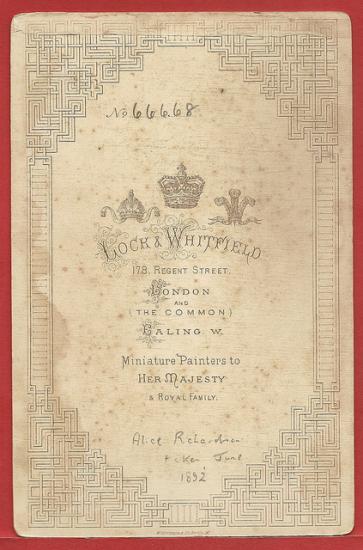 No 66668
LOCK & WHITFIELD
178, REGENT STREET,
LONDON
AND
(THE COMMON)
EALING. W.
Miniature Painters to
HER MAJESTY
& ROYAL FAMILY.
Alice Richardson
taken June
1892